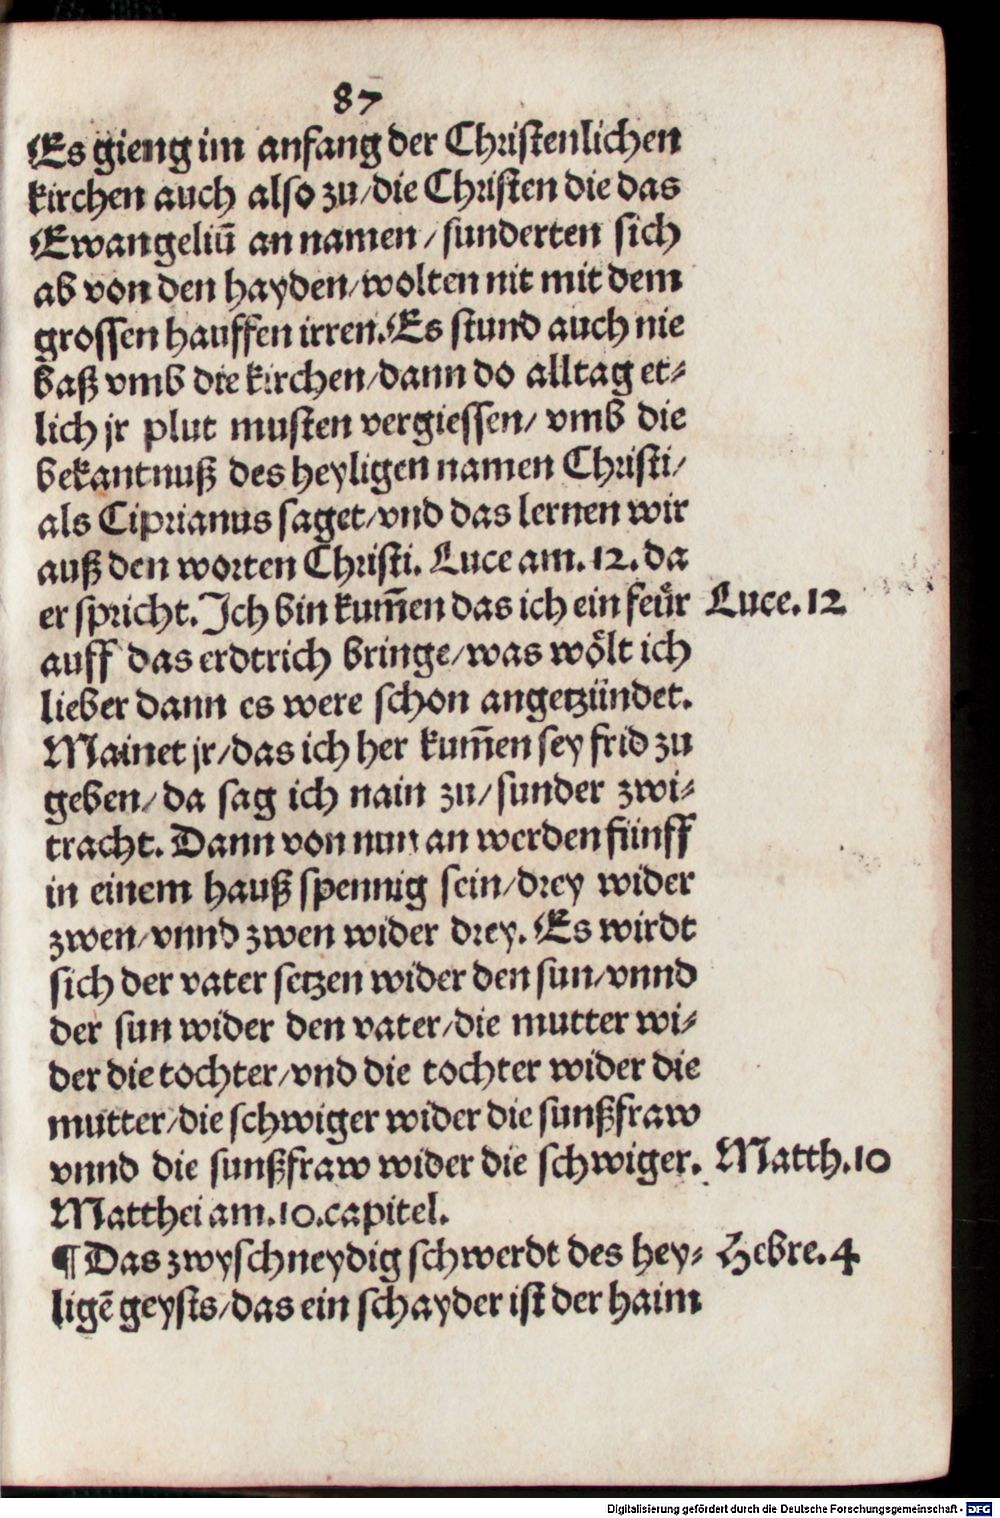 87
Es gieng im anfang der Christenlichen
kirchen auch also zu/die Christen die das
Ewangeliū an namen/sunderten sich
ab von den hayden/wolten nit mit dem
grossen hauffen irren.Es stund auch nie
baß vmb die kirchen/dann do alltag et⸗
lich jr plut musten vergiessen/vmb die
bekantnuß des heyligen namen Christi/
als Ciprianus saget/vnd das lernen wir
auß den worten Christi. Luce am.12.da
er spricht.Ich bin kum̄en das ich ein feuͤr Luce.12
auff das erdtrich bringe/was woͤlt ich
lieber dann es were schon angetzündet.
Mainet jr/das ich her kum̄en sey frid zu
geben/da sag ich nain zu/sunder zwi⸗
tracht. Dann von nun an werden fünff
in einem hauß spennig sein/drey wider
zwen/vnnd zwen wider drey. Es wirdt
sich der vater setzen wider den sun/vnnd
der sun wider den vater/die mutter wi⸗
der die tochter/vnd die tochter wider die
mutter/die schwiger wider die sunßfraw
vnnd die sunßfraw wider die schwiger. Matth.10
Matthei am.10.capitel.
¶Das zwyschneydig schwerdt des hey⸗ Hebre.4
ligē geysts/das ein schayder ist der haim
Digitalisierung gefördert durch die Deutsche Forschungsgemeinschaft - DFG